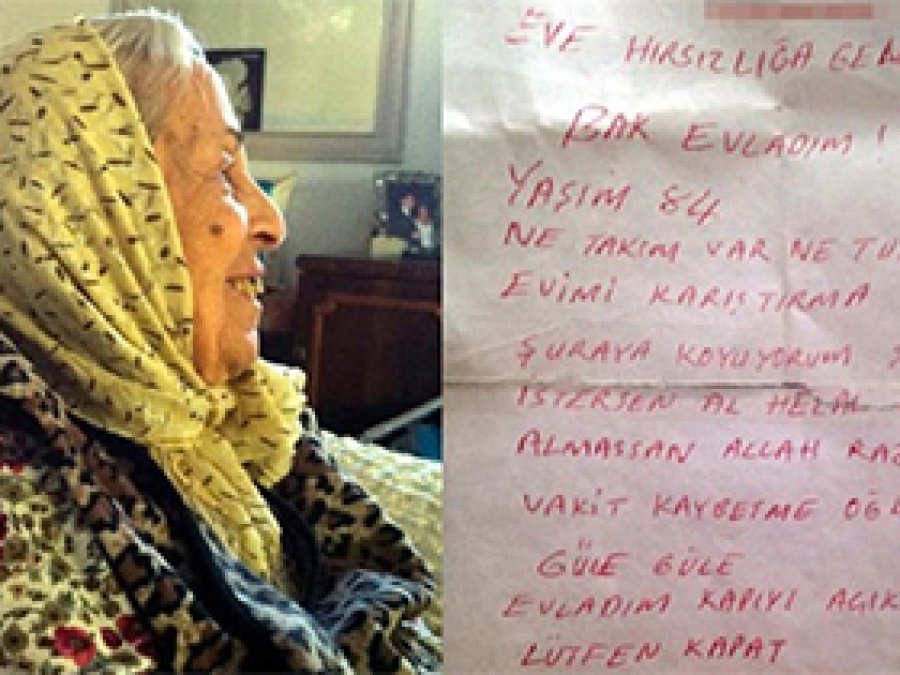 EVE HIRSIZLIĞA
BAK EVLADIM!
YAŞIM 84
NE TAKIM VAR NE
EVIMI KARIŞTIRMA
ŞURAYA KOYUYORUM
İSTERSEN AL HELAL
ALMASSAN ALLAH
VAKİT KAYBETME
GÜLE GÜLE
EVLADIM KAPIYI
LÜTFEN KAPAT